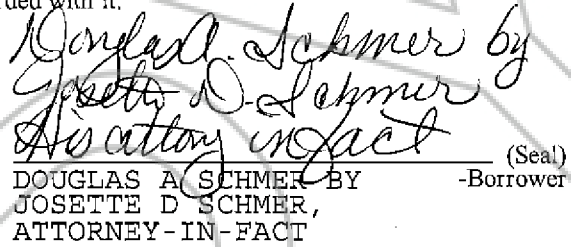 rded with it.
Douglas A. Schmer by
Josette D. Schmer
His attorny in fact
(Seal)
DOUGLAS A SCHMER BY -Borrower
JOSETTE D SCHMER,
ATTORNEY-IN-FACT